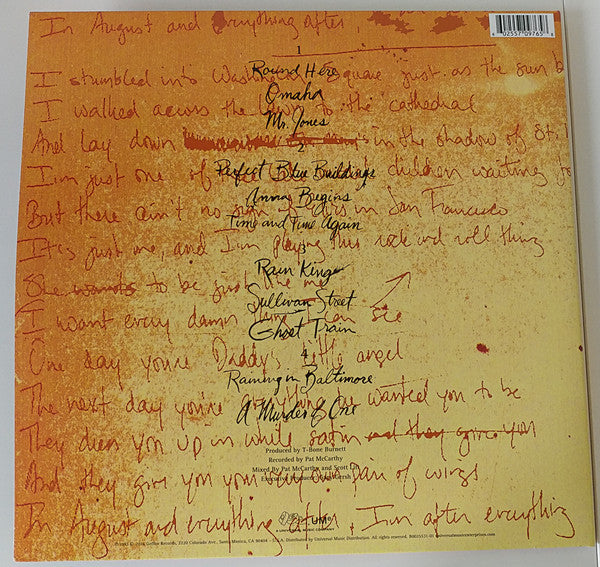 In August and everything after,
1
Round Here
Omaha
Mr. Jones
2
Perfect Blue Buildings
Anna Begins
Time and Time Again
3
Rain King
Sullivan Street
Ghost Train
4
Raining in Baltimore
A Murder of One
I stumbled into Square just as the sun
I walked across the to the cathedral
And lay down in the shadow of St.
I'm just one of children waiting
But there ain't no in San Francisco
It's just me, and I'm playing this rock and roll thing
She wants to be just like me
I want every damn thing I can see
One day you're Daddy's little angel
The next day you're wanted you to be
They dress you up in white satin and they give you
And they give you your pair of wings
In August and everything after, I'm after everything
Produced by T-Bone Burnett
Recorded by Pat McCarthy
Mixed By Pat McCarthy and Scott
Executive
UMe
6 02557 09765 8